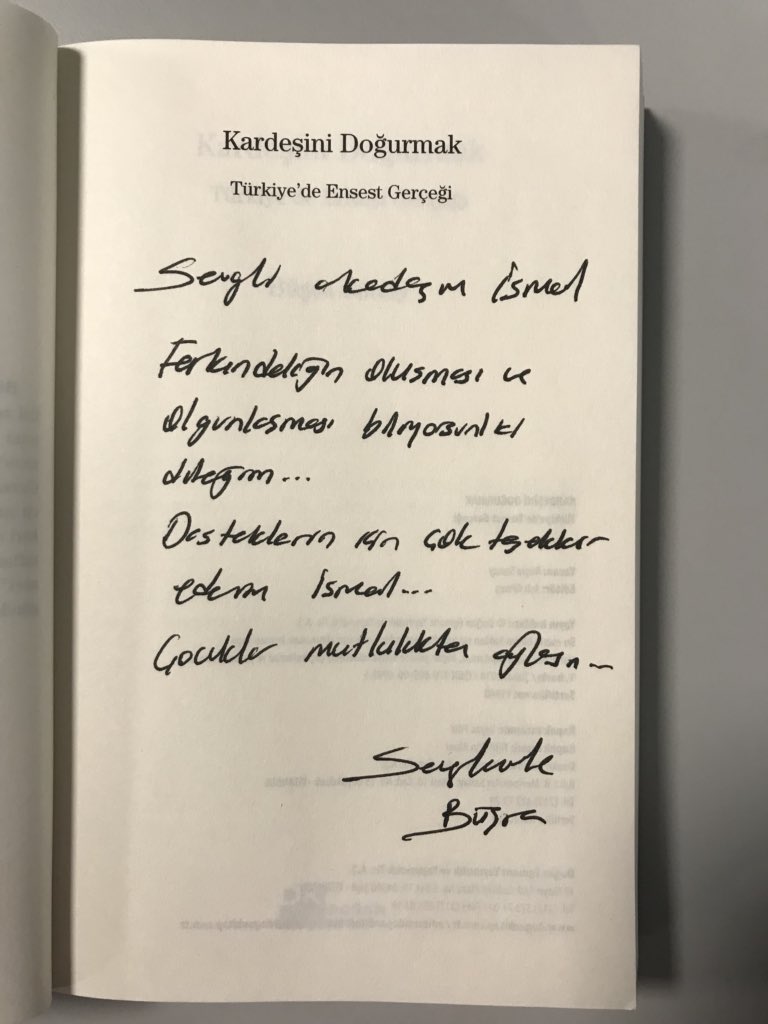 Kardeşini Doğurmak
Türkiye'de Ensest Gerçeği
Sevgili arkadaşım İsmail
Farkındalığın oluşması ve
olgunlaşması biliyorsun ki
dileğim...
Desteklerin için çok teşekkür
ederim İsmail...
Çocuklar mutluluktan ağlasın...
Sevgilerle
Büşra